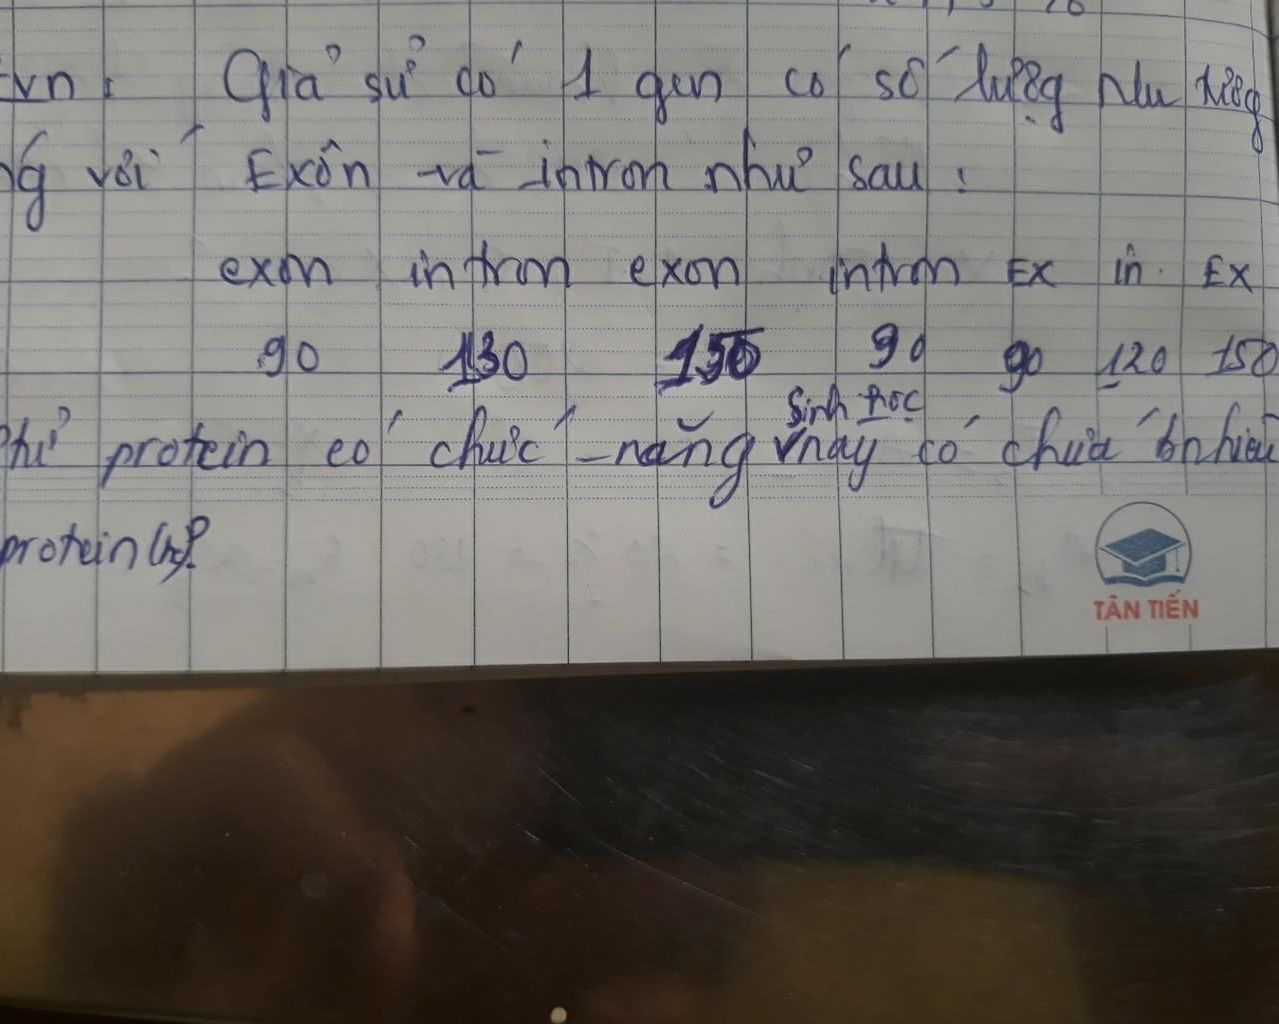 vn: Giả sử có 1 gen có số lượng nu tương
ng với Exôn và intron như sau:
exon intron exon intron EX in EX
90 130 150 90 90 120 150
sinh học
protein có chức năng này có chứa bnhiêu
protein
TÂN TIẾN